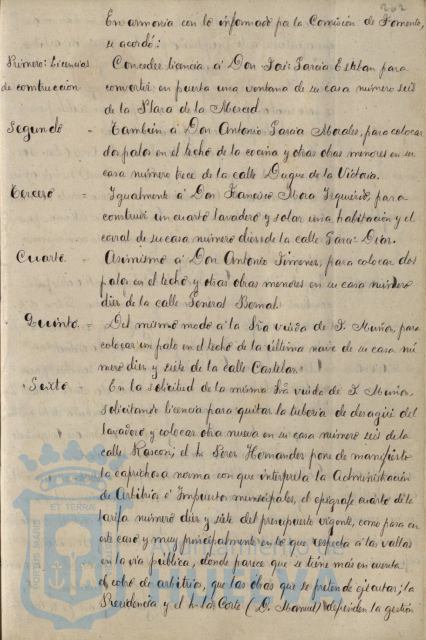 202
En armonía con lo informado por la Comisión de Fomento,
se acordó:
Primero: Licencias
de construcción
Conceder licencia á Don José García Esteban para
convertir en puerta una ventana de su casa número seis
de la Plaza de la Merced.
Segundo - También á Don Antonio García Morales, para colocar
dos palos en el techo de la cocina y otras obras menores en su
casa número trece de la calle Duque de la Victoria.
Tercero - Igualmente á Don Francisco Mora Izquierdo, para
construir un cuarto lavadero y solar una habitación y el
corral de su casa número diez de la calle Garci-Díaz.
Cuarto - Asimismo á Don Antonio Jimenez, para colocar dos
palos en el techo y otras obras menores en su casa número
diez de la calle General Bernal.
Quinto - Del mismo modo á la Sra viuda de J. Muñoz, para
colocar un palo en el techo de la última nave de su casa nú
mero diez y siete de la calle Castelar.
Sexto - En la solicitud de la misma Sra viuda de J. Muñoz,
solicitando licencia para quitar la tubería de desagüe del
lavadero y colocar otra nueva en su casa número seis de la
calle Rascón, el Sr Perez Hernandez pone de manifiesto
la caprichosa norma con que interpreta la Administración
de Arbitrios é Impuestos municipales, el epígrafe cuarto de la
tarifa número diez y siete del presupuesto vigente, como pasa en
este caso y muy principalmente en lo que respecta á las vallas
en la vía pública, donde parece que se tiene más en cuenta
el cobro de arbitrios, que las obras que se pretende ejecutar; la
Presidencia y el Sr de la Corte (D. Manuel) defienden la gestión
PORTUS MARIS ET TERRAE
Ayuntamiento de
HUELVA